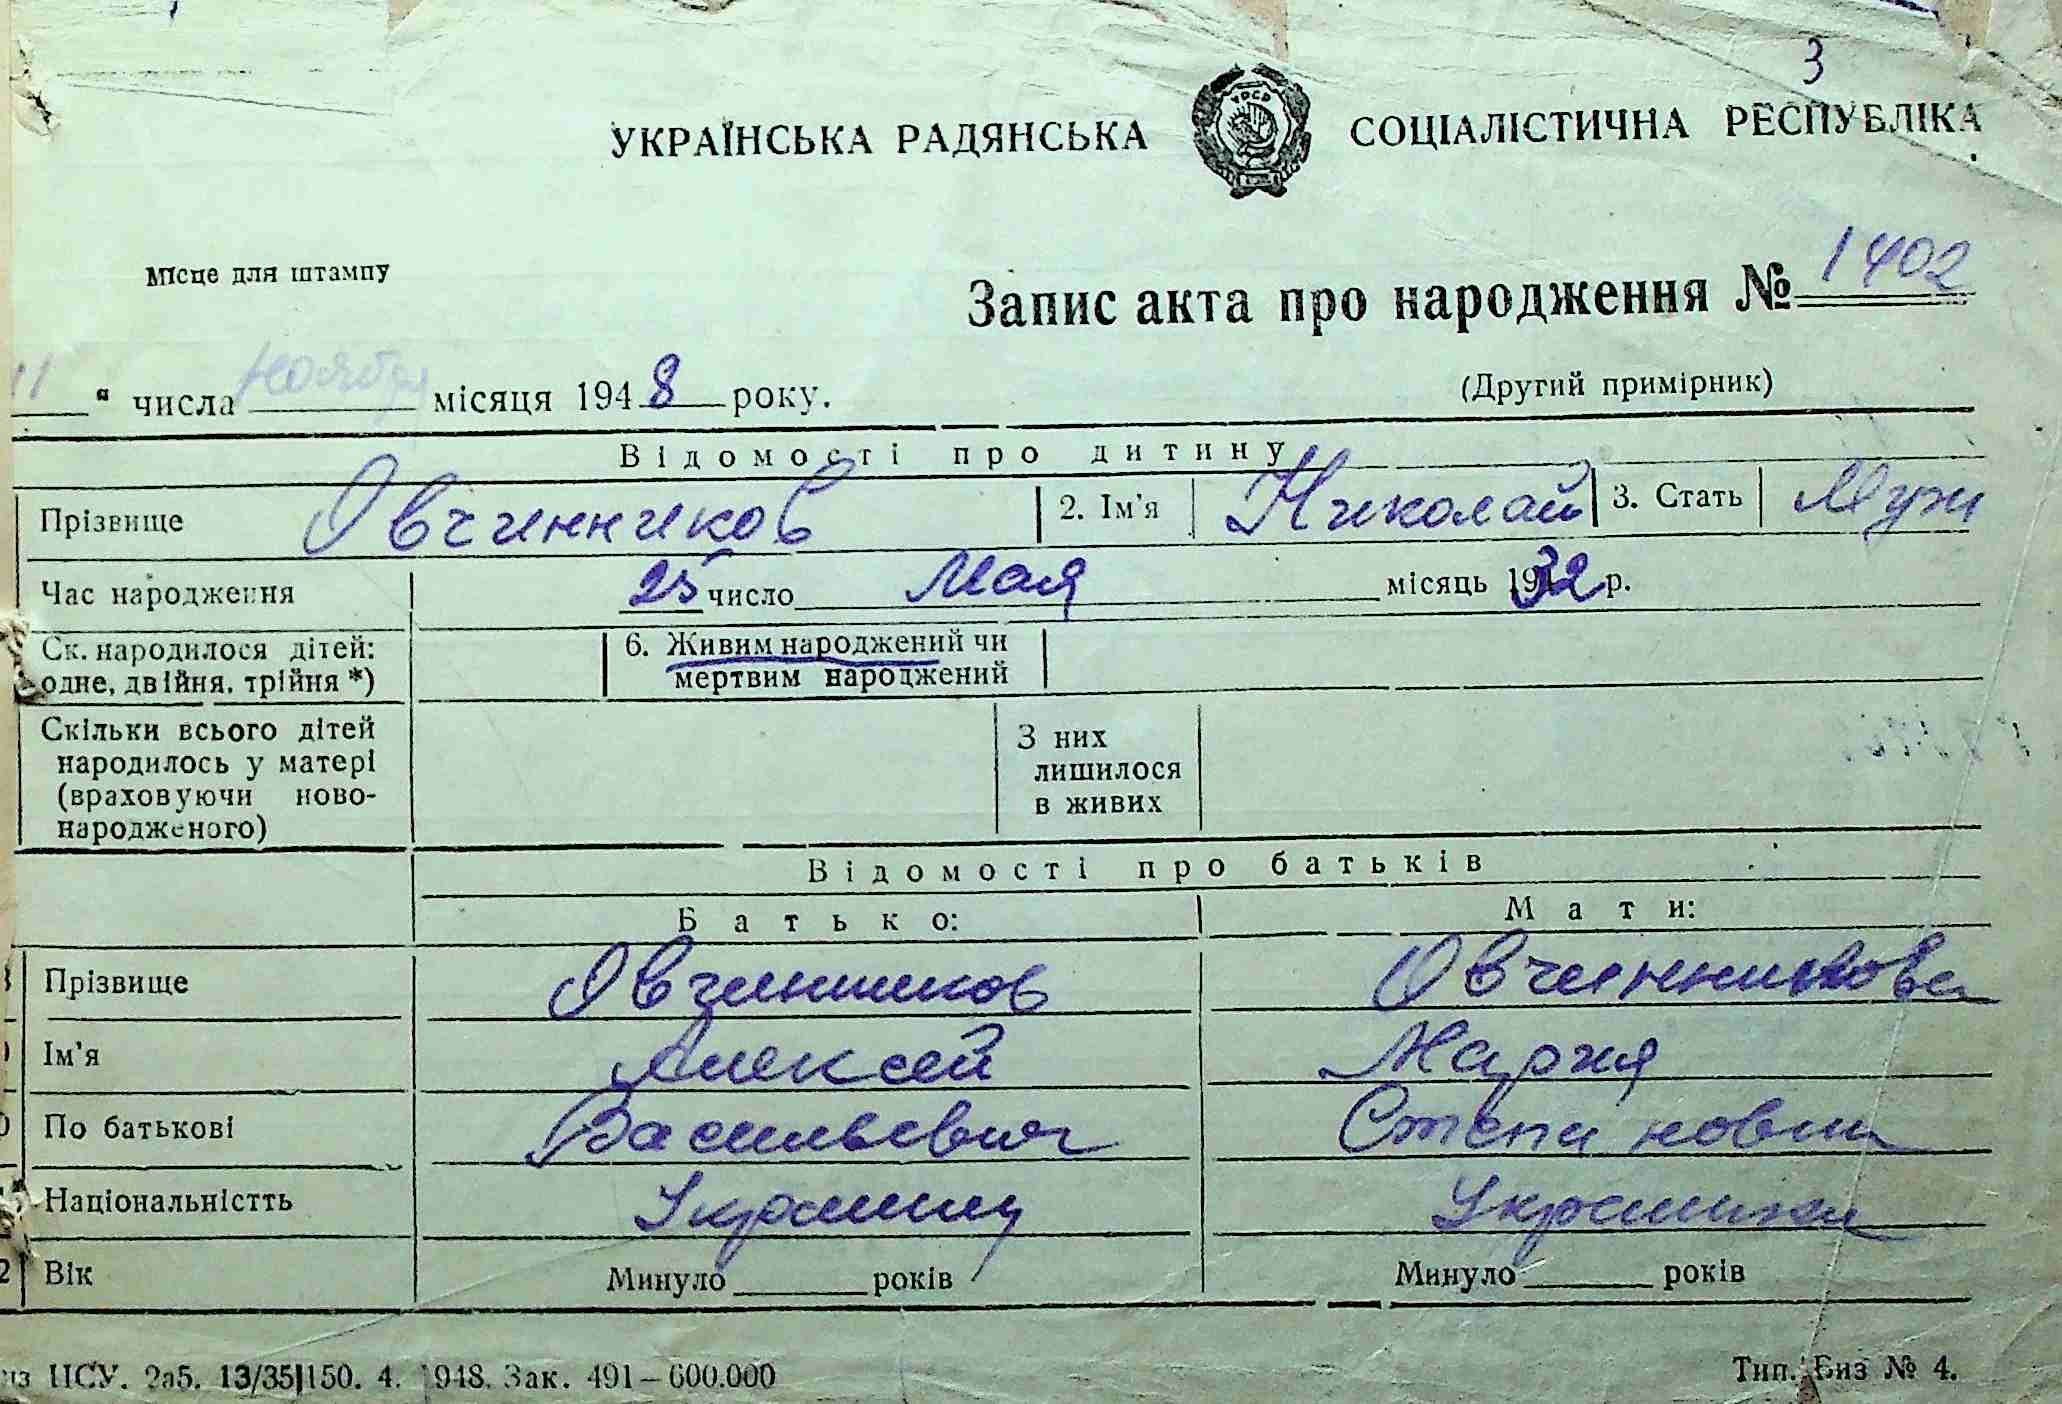 3
УКРАЇНСЬКА РАДЯНСЬКА СОЦІАЛІСТИЧНА РЕСПУБЛІКА
Місце для штампу
Запис акта про народження № 1402
11 " числа ноября місяця 1948 року.
(Другий примірник)
Відомості про дитину
Прізвище Овчинников 2. Ім'я Николай 3. Стать Муж
Час народження 25 число Мая місяць 1932 р.
Ск. народилося дітей: одне, двійня, трійня *)
6. Живим народжений чи мертвим народжений
Скільки всього дітей
народилось у матері
(враховуючи ново-
народженого)
З них
лишилося
в живих
Відомості про батьків
Батько: Мати:
Прізвище Овчинников Овчинникова
Ім'я Алексей Мария
По батькові Васильевич Степановна
Національністть Украинец Украинка
Вік Минуло років Минуло років
ЦСУ. 2а5. 13/35|150. 4. 1948. Зак. 491—600.000
Тип. Биз № 4.